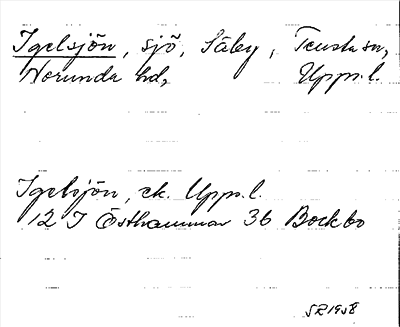 Igelsjön, sjö, Säby, Tensta sn,
Norunda hd, Upps.l.
Igelsjön, ek. Upps.l.
12 I Östhammar 36 Bockbo
SR 1958